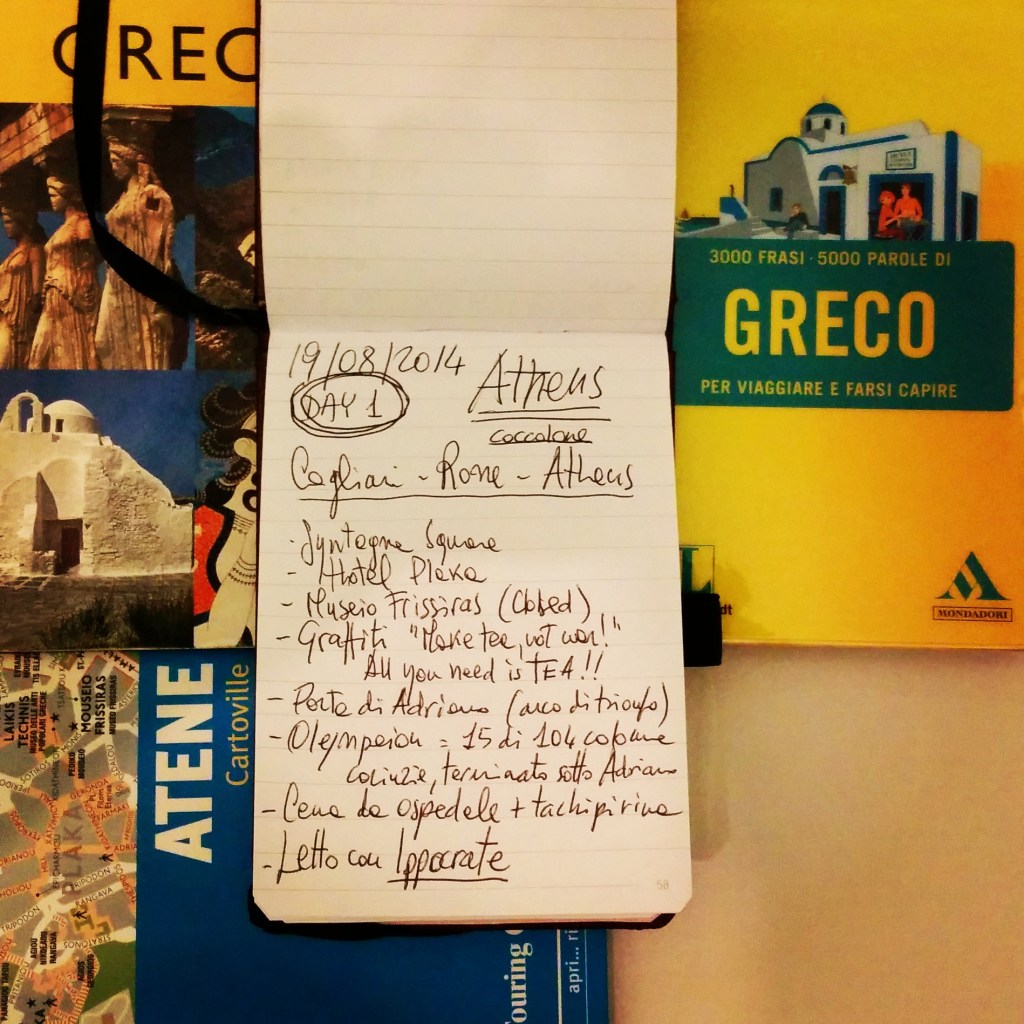 GREC
3000 FRASI · 5000 PAROLE DI
GRECO
PER VIAGGIARE E FARSI CAPIRE
L
dt
MONDADORI
19/08/2014
DAY 1
Athens
coccolone
Cagliari - Rome - Athens
- Syntagma Square
- Hotel Plaka
- Museio Frissiras (Closed)
- Graffiti "Make tea, not war!"
All you need is TEA!!
- Porta di Adriano (arco di trionfo)
- Olympeion = 15 di 104 colonne
corinzie, terminato sotto Adriano
- Cena da ospedale + tachipirina
- Letto con Ippocrate
50
ATENE
Cartoville
Touring
apri... ri
LAIKIS
TECHNIS
MUSEO DELLE ARTI
POPOLARI GRECHE
MOUSEIO
FRISSIRAS
MUSEO FRISSIRAS
PLAKA
TRIPODON
RANGAVA
AGIOU